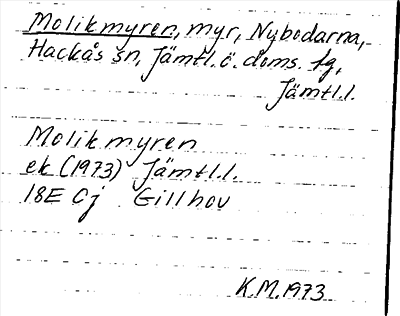 Molikmyren, myr, Nybodarna,
Hackås sn, Jämtl. ö. doms. tg,
Jämtl.l.
Molikmyren
ek (1973) Jämtl.l.
18E Cj Gillhov
K.M. 1973